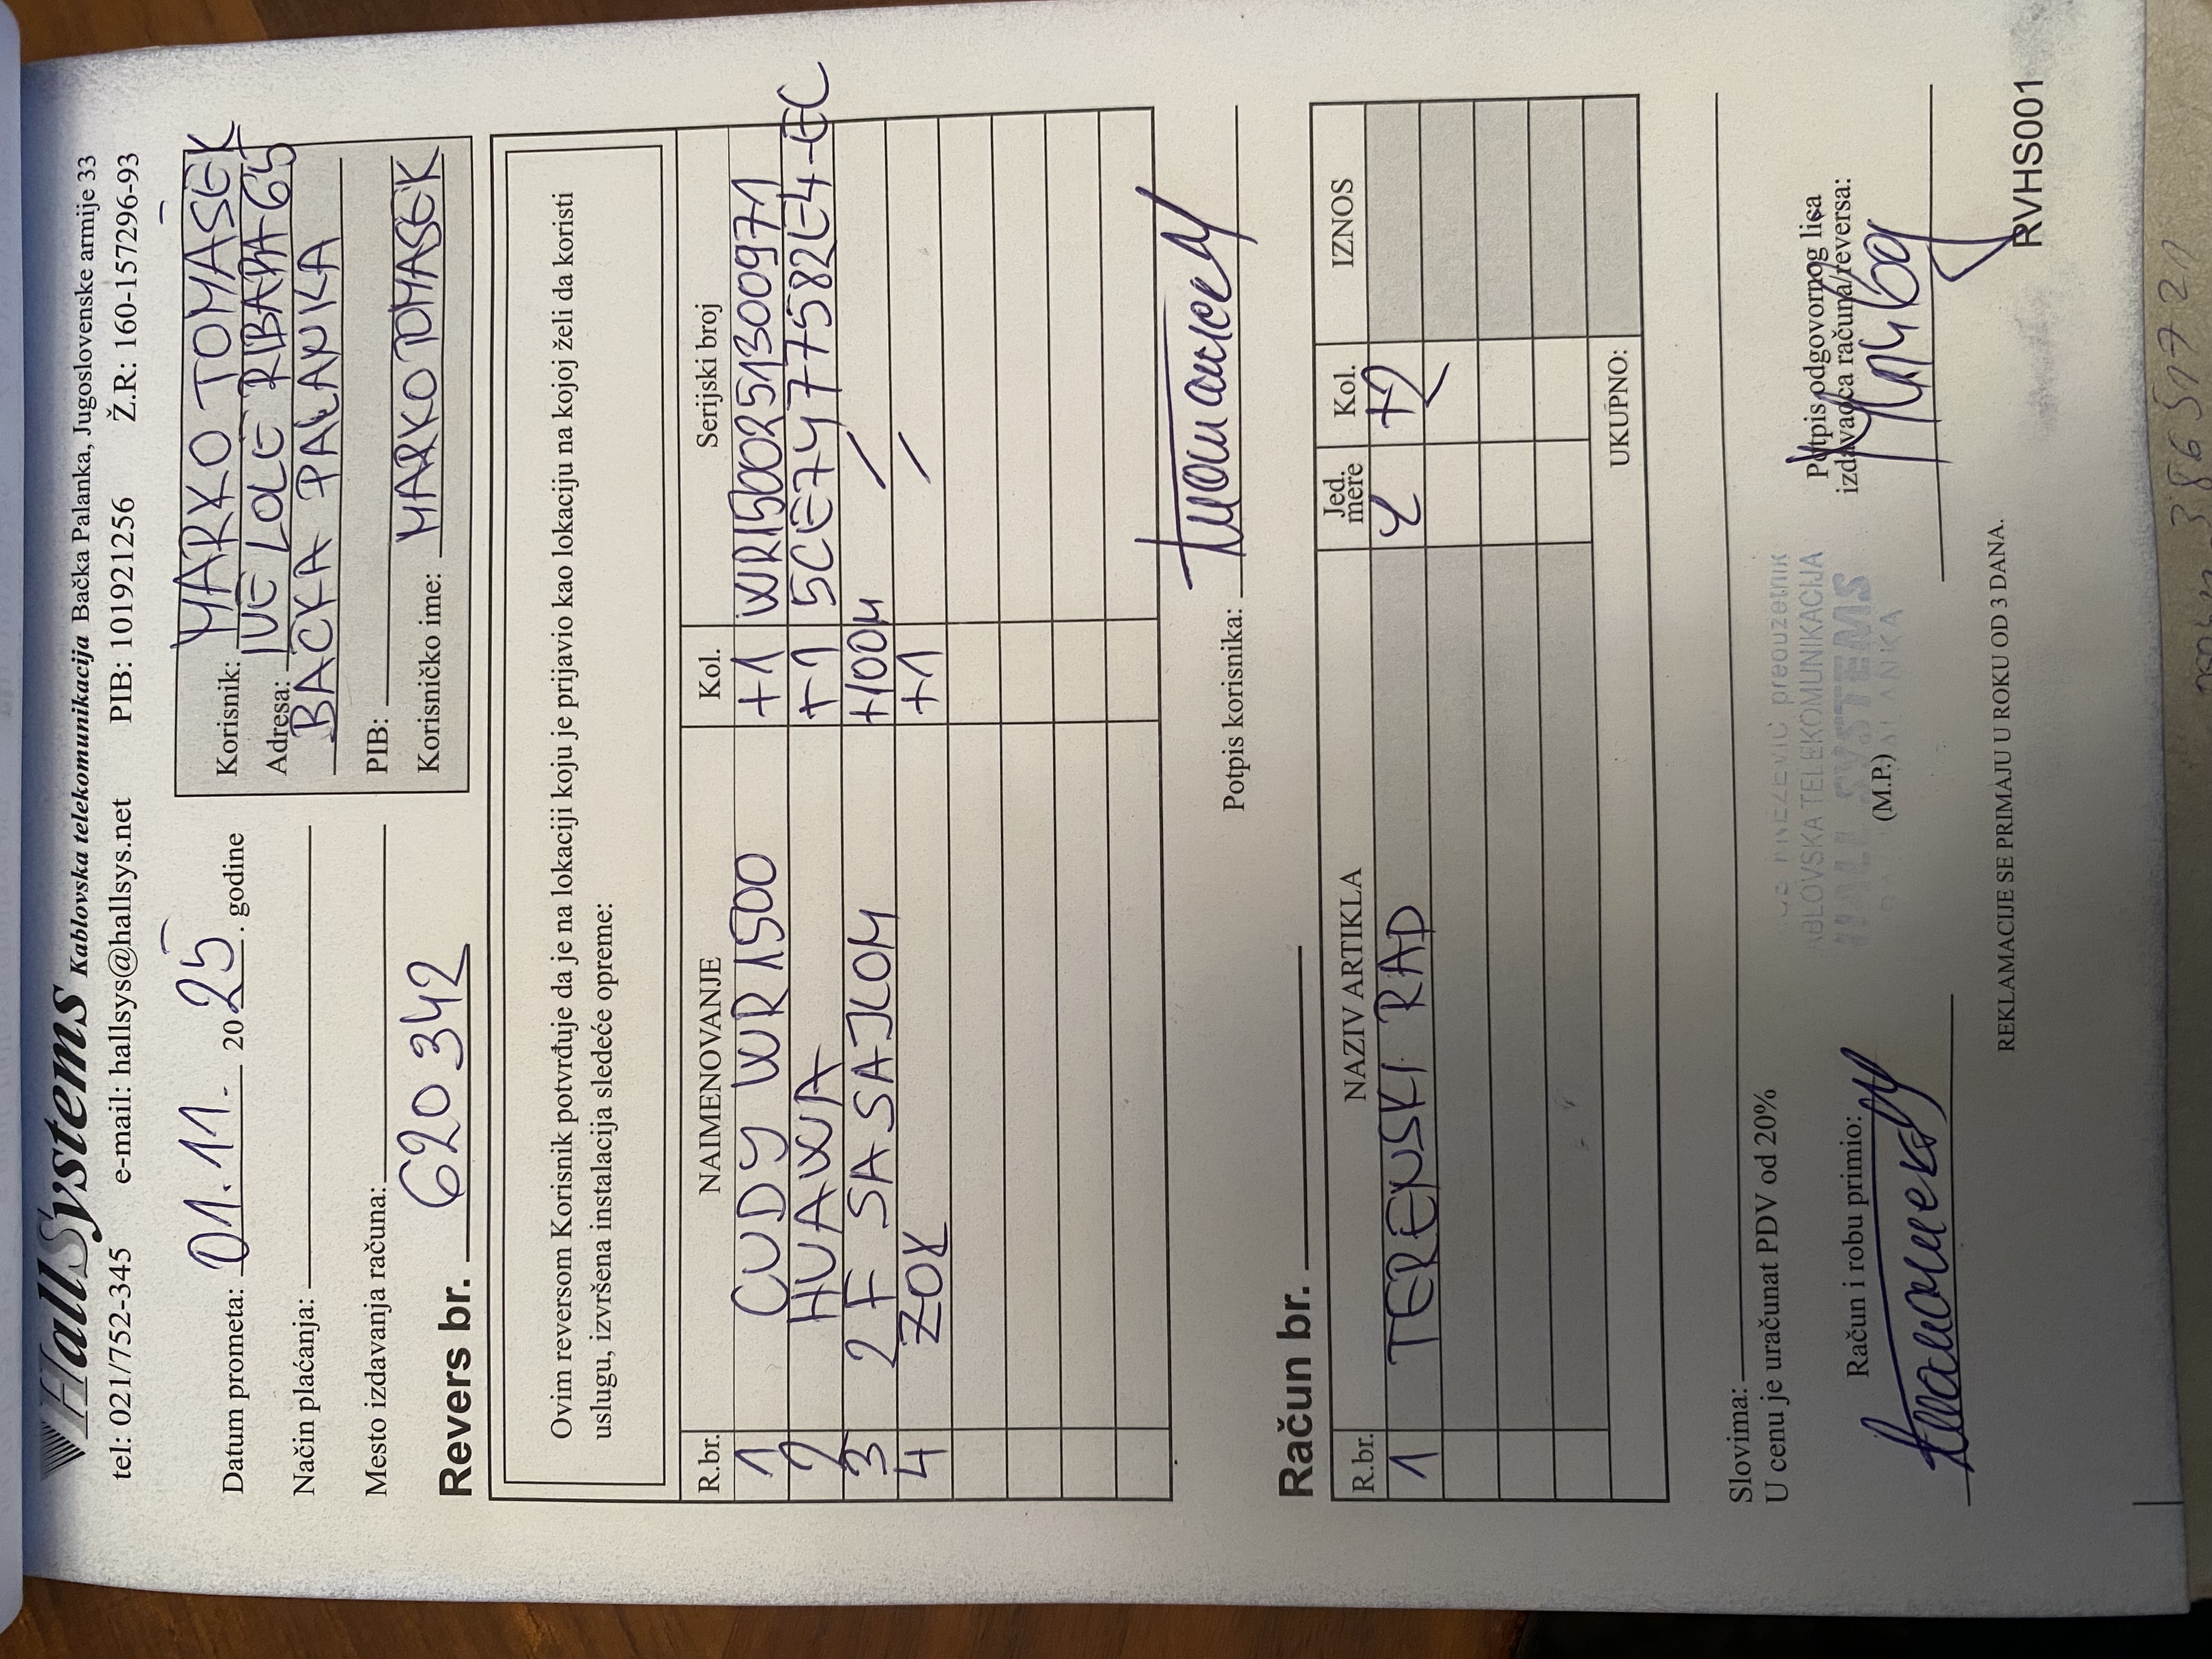 HallSystems Kablovska telekomunikacija Bačka Palanka, Jugoslovenske armije 33
tel: 021/752-345 e-mail: hallsys@hallsys.net PIB: 101921256 Ž.R: 160-1577296-93
Datum prometa: 01.11. 2025. godine
Način plaćanja:
Mesto izdavanja računa:
Revers br. 620342
Korisnik: MARKO TOMASEK
Adresa: IVE LOLE RIBARA 65
BACKA PALANKA
PIB:
Korisničko ime: MARKO TOMASEK
Ovim reversom Korisnik potvrđuje da je na lokaciji koju je prijavio kao lokaciju na kojoj želi da koristi
uslugu, izvršena instalacija sledeće opreme:
R.br. NAIMENOVANJE Kol. Serijski broj
1 CUDY WR1500 +1 WR1500251300971
2 HUAWA +1
3 2F SA SAJLOM +100m /
4 ZOK +1 /
Potpis korisnika:
Račun br.
R.br. NAZIV ARTIKLA Jed. mere Kol. IZNOS
1 TERENSKI RAD +2
UKUPNO:
Slovima:
U cenu je uračunat PDV od 20%
Račun i robu primio:
(M.P.)
Potpis odgovornog lica
izdavaoca računa/reversa:
preduzetnik
KABLOVSKA TELEKOMUNIKACIJA
HALL SYSTEMS
REKLAMACIJE SE PRIMAJU U ROKU OD 3 DANA.
RVHS001